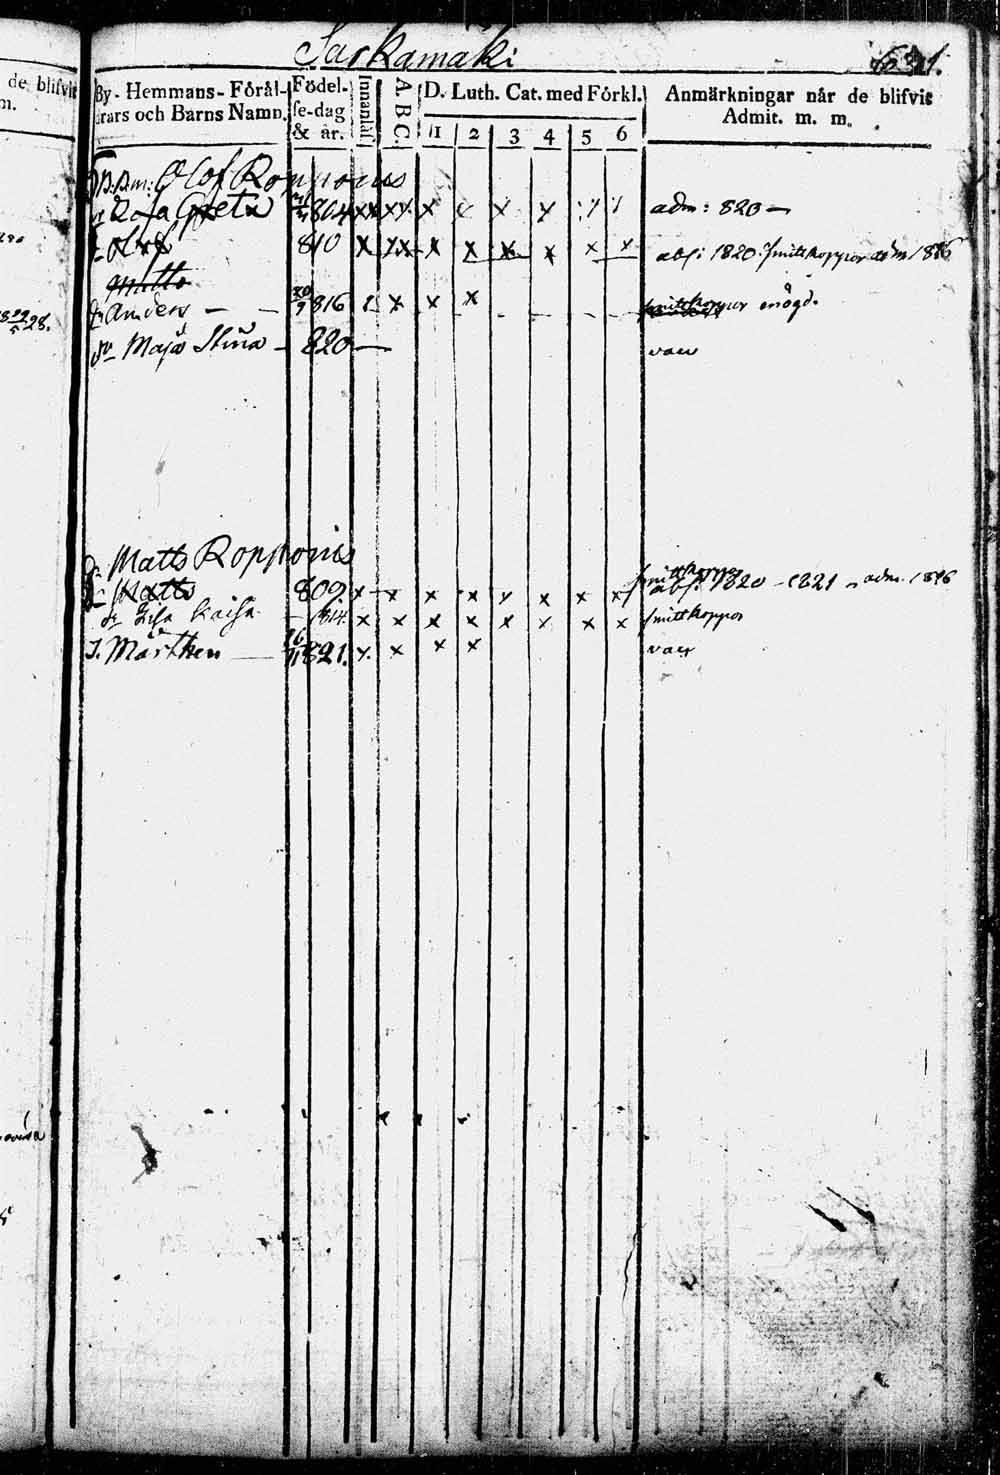 Sarkamäki 631.
de blifvit
m.
By-Hemmans-Förål-
drars och Barns Namn.
Födel-
se-dag
& år.
Innanläs.
A B C.
D. Luth. Cat. med Förkl.
1 2 3 4 5 6
Anmärkningar når de blifvit
Admit. m. m.
Olof Ropponis
Greta 804 x x x x x adm: 820 —
Olof 810 x x x x x x x x abs: 1820. smittkoppor adm 1826
Matts
Anders — — 816 x x x smittkoppor ensögd.
Maja Stina — 820 — vacc
Matts Ropponis
Matts 809. x x x x x x x x smittkoppor abs: 1820 - 1821 adm. 1826
Lisa Kaisa — 814. x x x x x x x x smittkoppor
Mårthen — 821. x x x x vacc